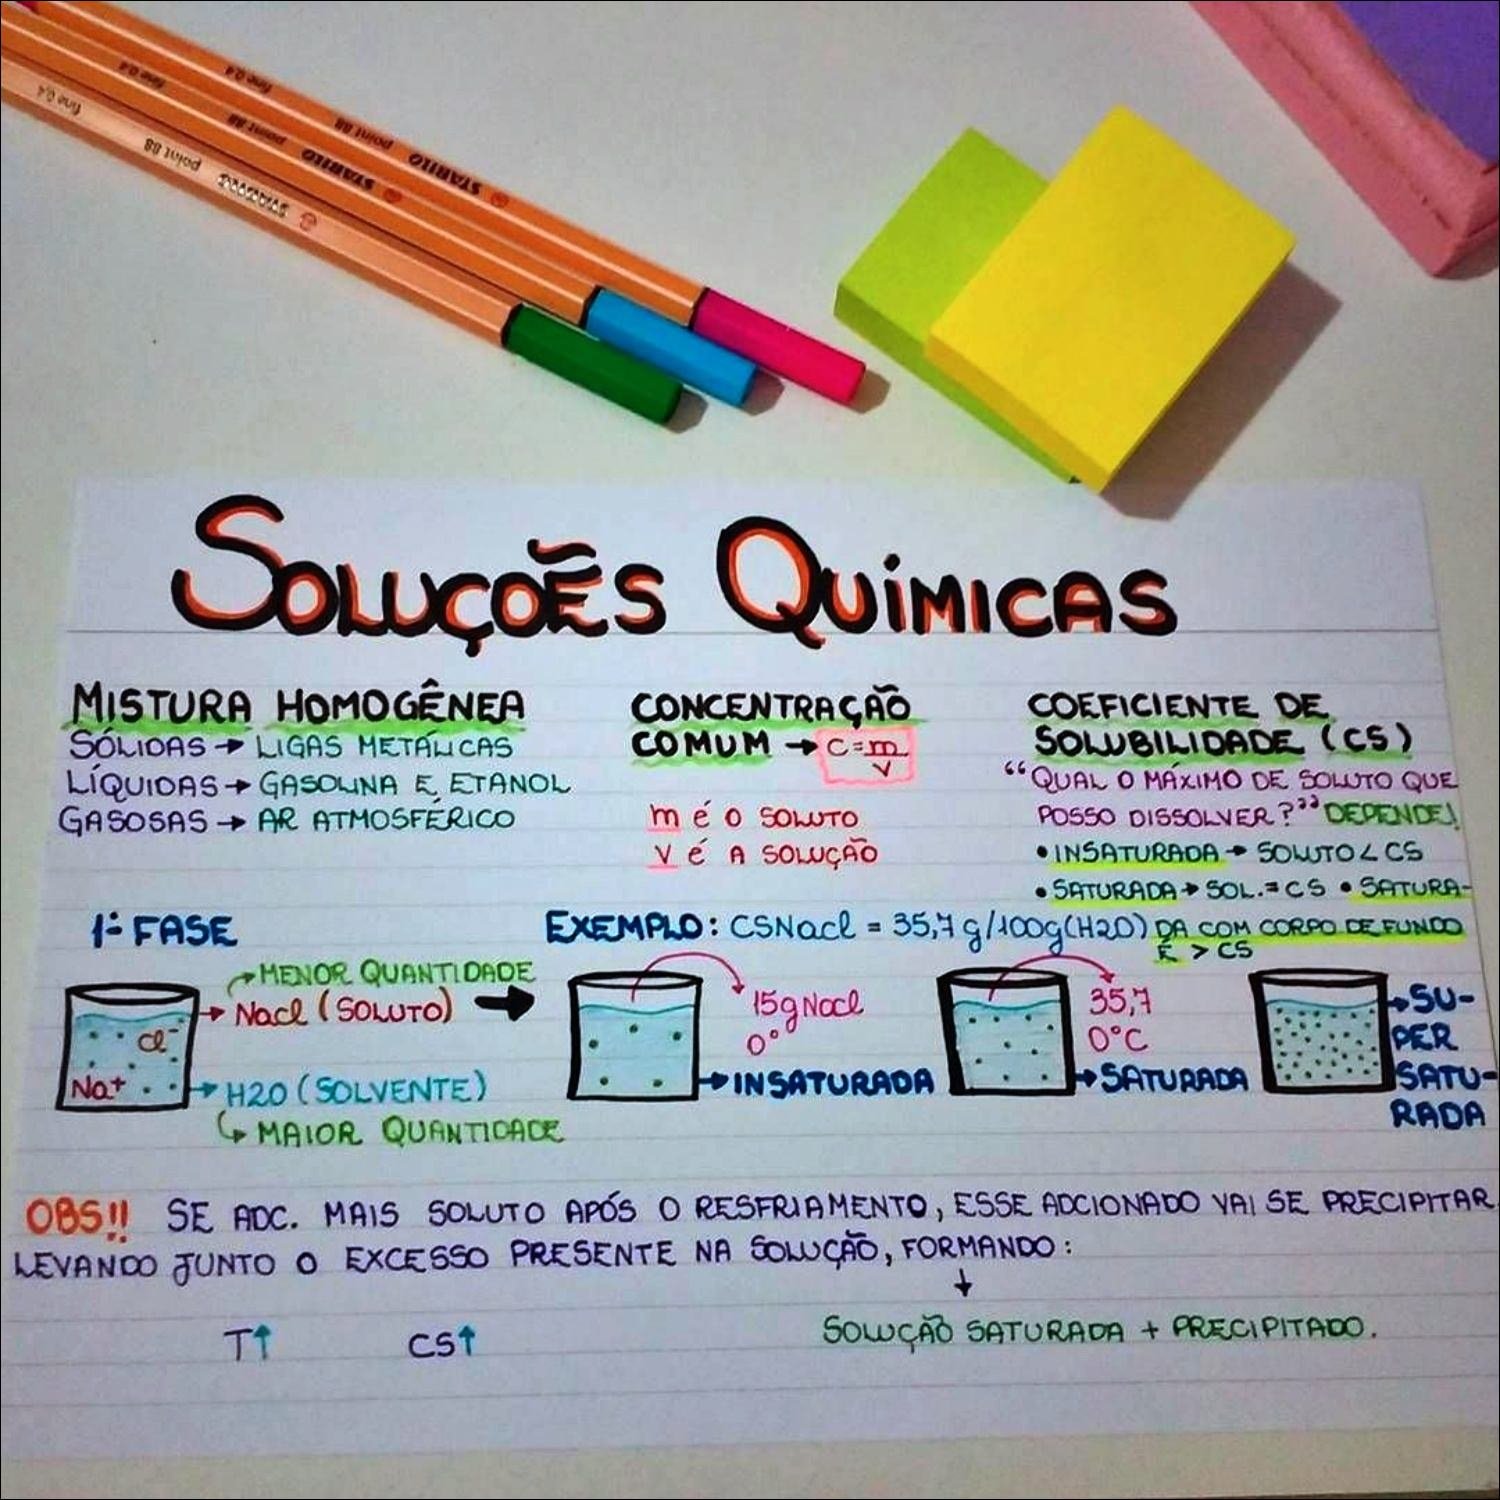 fine 0,4
point 88
STABILO
fine 0,4
point 88
STABILO
fine 0,4
point 88
STABILO
SOLUÇÕES QUÍMICAS
MISTURA HOMOGÊNEA
SÓLIDAS → LIGAS METÁLICAS
LÍQUIDAS → GASOLINA E ETANOL
GASOSAS → AR ATMOSFÉRICO
CONCENTRAÇÃO
COMUM → C=m/V
m é o SOLUTO
V é A SOLUÇÃO
COEFICIENTE DE
SOLUBILIDADE (CS)
“QUAL O MÁXIMO DE SOLUTO QUE
POSSO DISSOLVER?” DEPENDE!
• INSATURADA → SOLUTO < CS
• SATURADA → SOL. = CS • SATURA-
DA COM CORPO DE FUNDO
É > CS
1ª FASE
EXEMPLO: CSNacl = 35,7 g/100g(H2O)
Cl-
Na+
MENOR QUANTIDADE
→ Nacl (SOLUTO)
→ H2O (SOLVENTE)
MAIOR QUANTIDADE
15g Nacl
0°
→ INSATURADA
35,7
0°C
→ SATURADA
→ SU-
PER
SATU-
RADA
OBS!! SE ADC. MAIS SOLUTO APÓS O RESFRIAMENTO, ESSE ADCIONADO VAI SE PRECIPITAR
LEVANDO JUNTO O EXCESSO PRESENTE NA SOLUÇÃO, FORMANDO:
↓
SOLUÇÃO SATURADA + PRECIPITADO.
T↑ CS↑